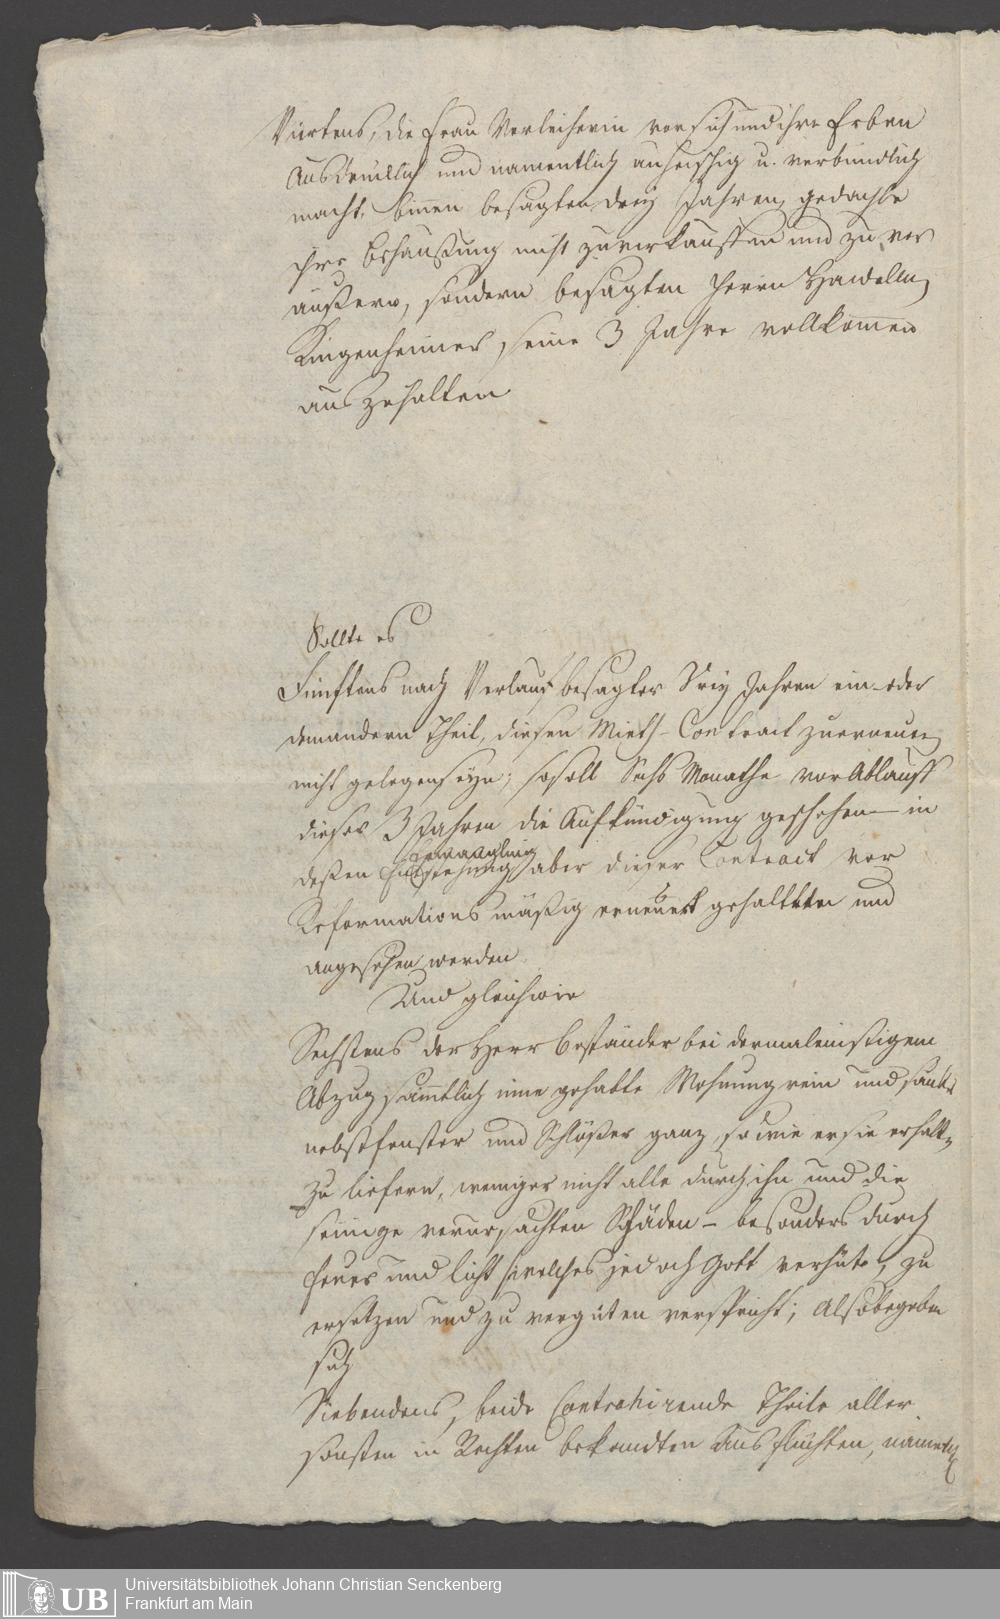 Viertens, die Frau Verleiherin vor sich und ihre Erben
Ausdrücklich und namentlich anheischig u. verbindlich
macht, binnen besagten drey Jahren, gedachte
ihre Behaußung nicht zuverkauffen und zu ver
äußern, sondern besagten Herrn
seine 3 Jahre vollkomen
auszuhalten
Sollte es
Fünftens nach Verlauf besagter Drey Jahren ein oder
dem andern Theil, diesen Mieth-Contract zuerneuern
nicht gelegen seyn; so soll Sechs Monathe vor Ablauff
dieser 3 Jahren die Aufkündigung geschehen – in
Ermanglung
deßen Entstehung aber dieser Contract vor
Reformations mäßig erneuert gehalten und
angesehen werden
Und gleichwie
Sechstens der Herr Beständer bei dermaleinstigem
Abzug sämtlich inne gehabte Wohnung rein und sauber
nebst Fenster und Schlößer ganz, so wie er sie erhalten
zu liefern, weniger nicht alle durch ihn und die
seinige verursachten Schäden – besonders durch
Feuer und Licht welches jedoch Gott verhüte, zu
ersetzen und zu vergüten verspricht; Also begeben
sich
Siebendens, beide Contrahirende Theile aller
sonsten in Rechten bekandten Ausflüchten, namentlich